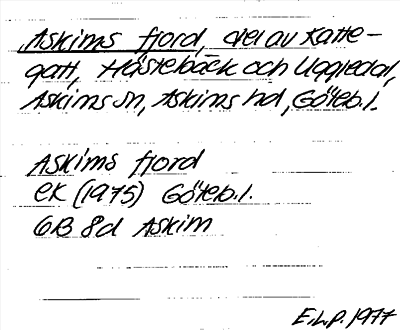 Askims fjord, del av Katte-
gatt, Hästebäck och Uggledal,
Askims sn, Askims hd, Göteb.l.
Askims fjord
EK (1975) Göteb.l.
6B 8d Askim
E.L.P. 1977